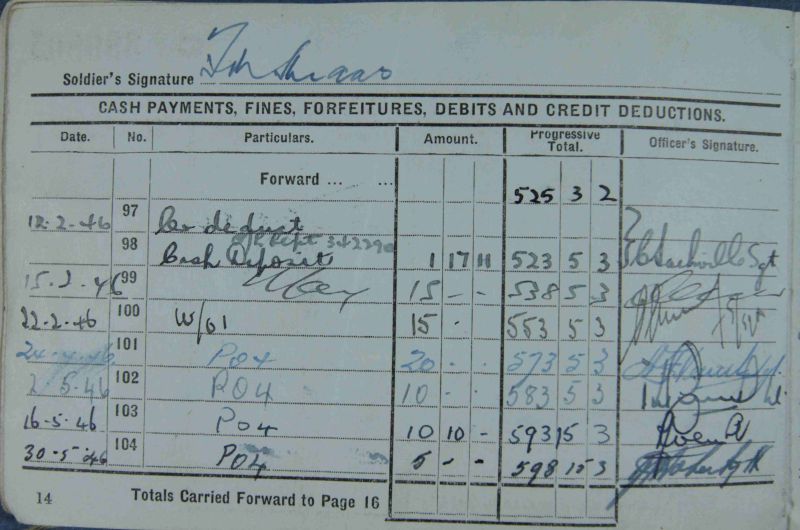 Soldier's Signature
CASH PAYMENTS, FINES, FORFEITURES, DEBITS AND CREDIT DEDUCTIONS.
Date. No. Particulars. Amount. Progressive Total. Officer's Signature.
Forward ... ... 525 3 2
12-2-46 97 deduct
98 Cash Deposit 1 17 11 523 5 3 Sgt
15-2-46 99 15 - - 538 5 3
22-2-46 100 W/61 15 - 553 5 3
101 PO4 20 - - 573 5 3
2 5-46 102 PO4 10 - - 583 5 3
16-5-46 103 PO4 10 10 - 593 15 3
30-5-46 104 PO4 5 - - 598 15 3
14 Totals Carried Forward to Page 16